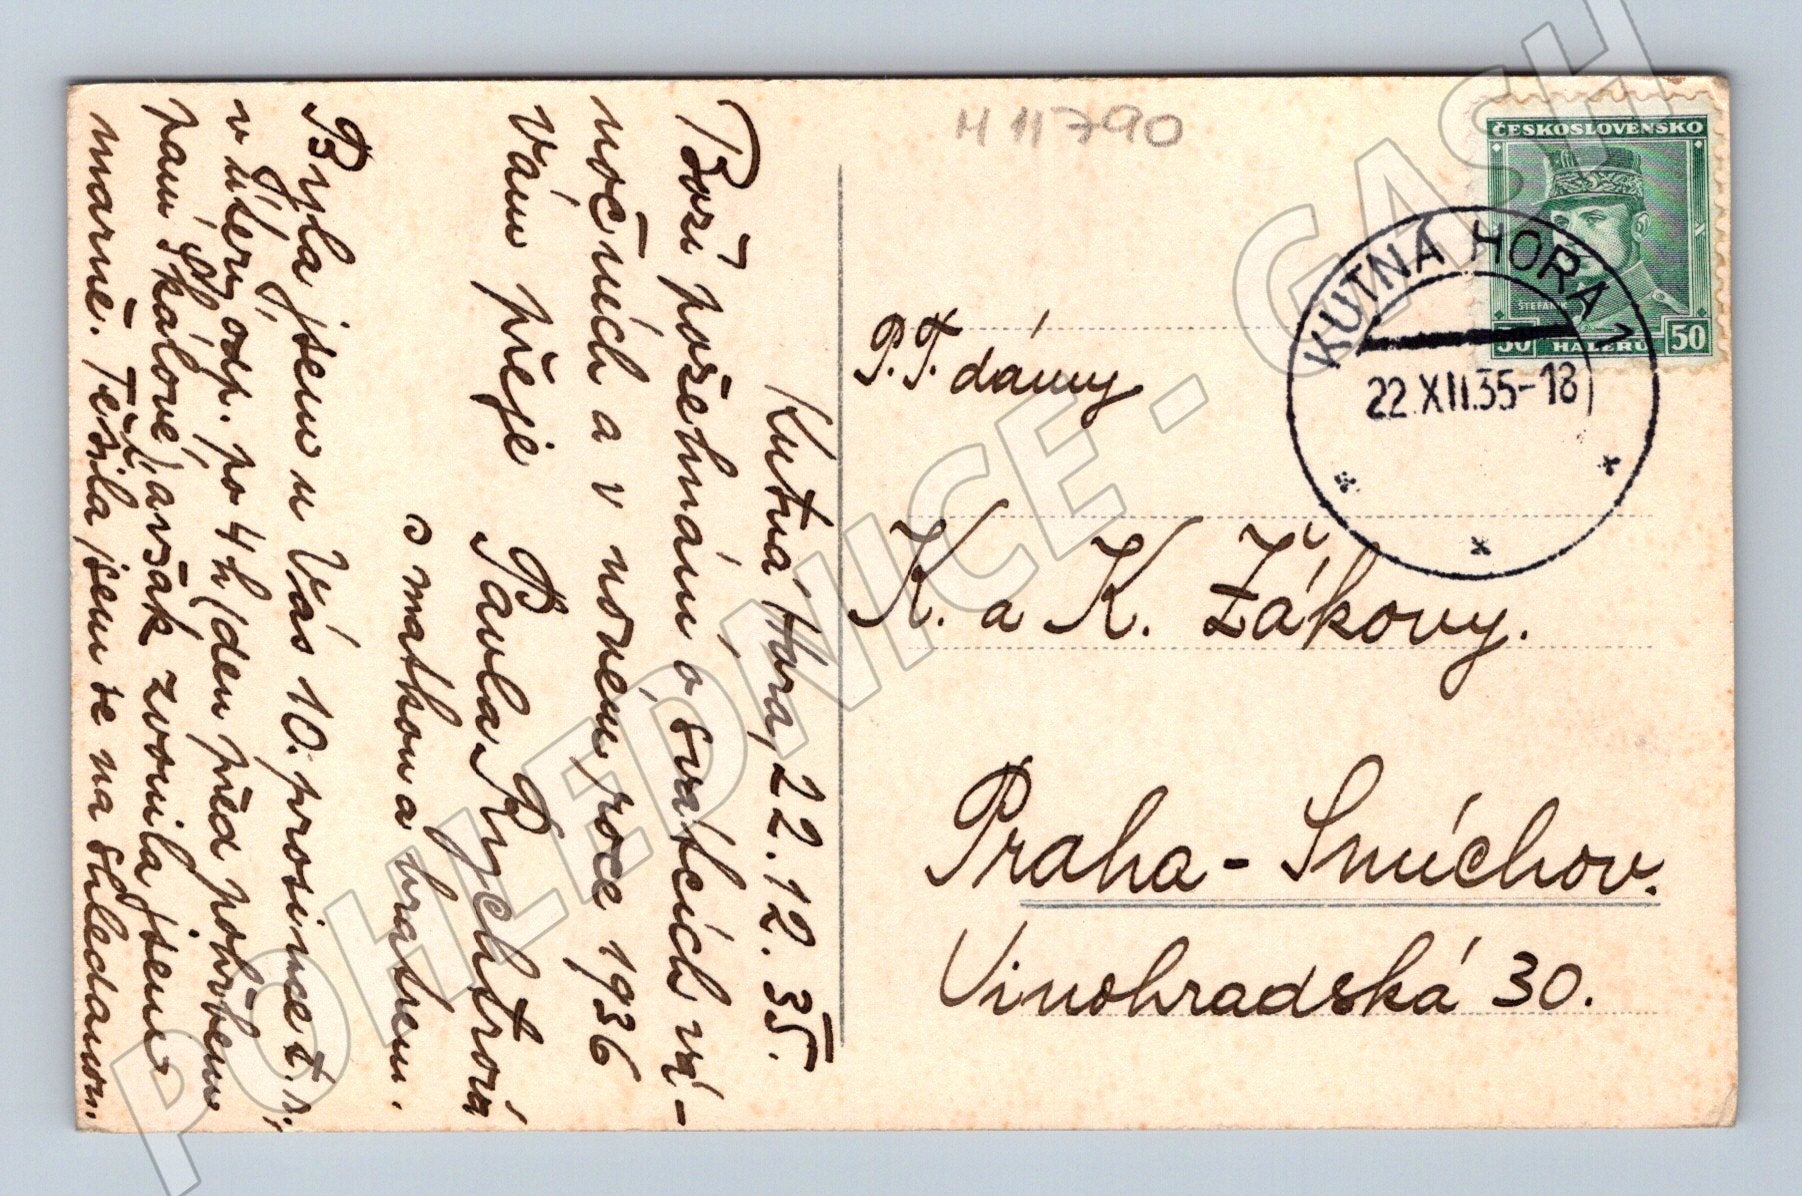 Kutná Hora, 22. 12. 35.
Boží požehnání o svatcích vá-
nočních a v novém roce 1936
Vám přeje Pavla Rychtrová
s matkou a bratrem.
Byla jsem u Vás 10. prosince t. r.,
v úterý odp. po 4 h (den před pohřbem
paní Skálové) avšak zvonila jsem
marně. Těšila jsem se na shledanou.
H 11790
ČESKOSLOVENSKO
ŠTEFÁNIK
50 50
HALÉŘŮ
KUTNÁ HORA 1
22.XII.35-18
P. T. dámy
K. a K. Žákovy.
Praha - Smíchov.
Vinohradská 30.
POHLEDNICE - GASH